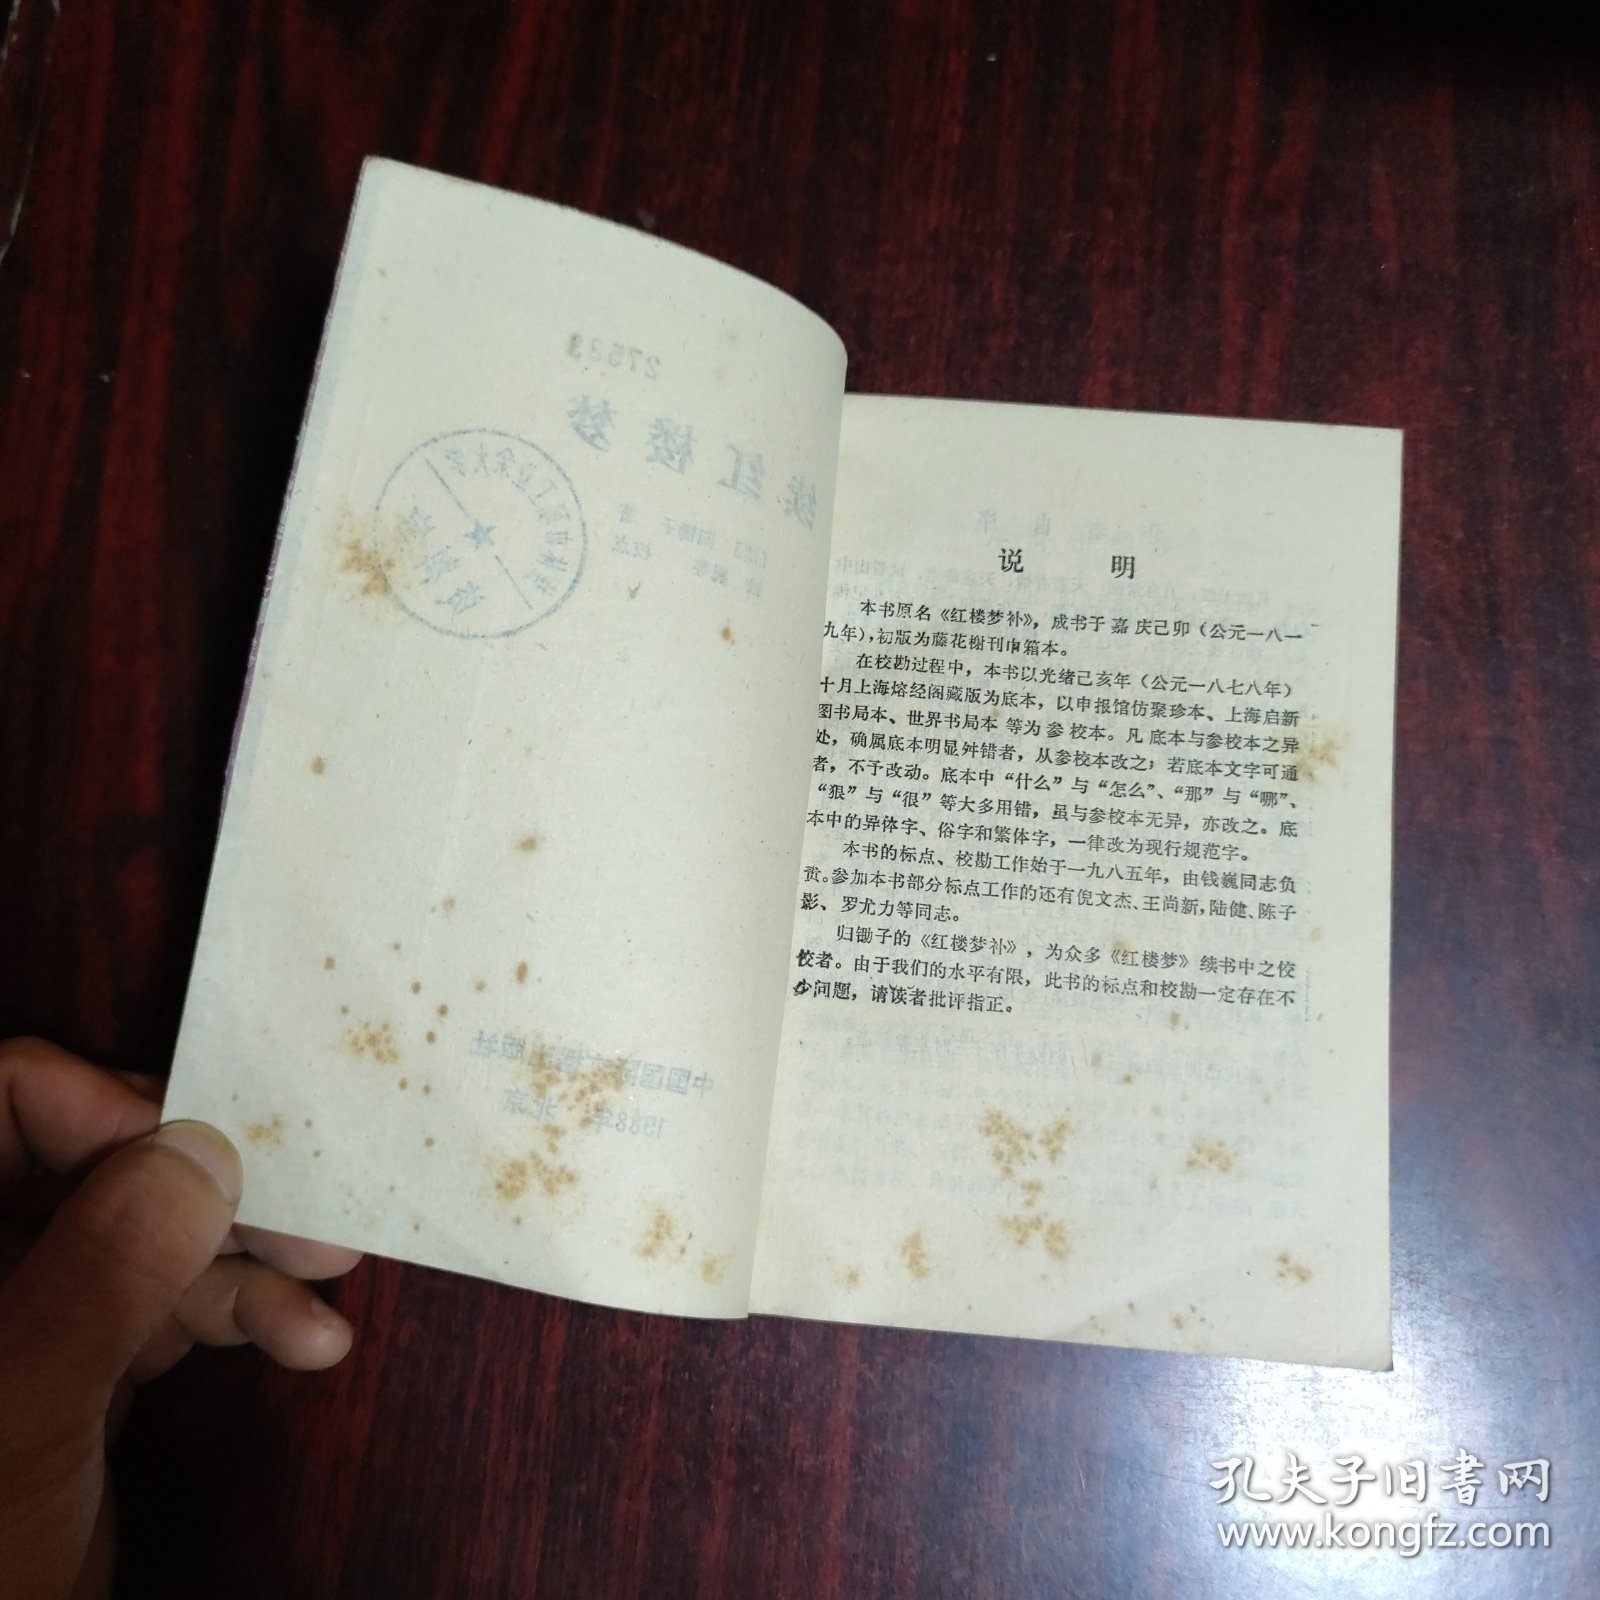 27533
续红楼梦
著
校点
中国国际文化出版社
1988年 北京
说 明
本书原名《红楼梦补》，成书于嘉庆己卯（公元一八一
九年），初版为藤花榭刊巾箱本。
在校勘过程中，本书以光绪己亥年（公元一八七八年）
十月上海熔经阁藏版为底本，以申报馆仿聚珍本、上海启新
图书局本、世界书局本等为参校本。凡底本与参校本之异
处，确属底本明显舛错者，从参校本改之；若底本文字可通
者，不予改动。底本中“什么”与“怎么”、“那”与“哪”、
“狠”与“很”等大多用错，虽与参校本无异，亦改之。底
本中的异体字、俗字和繁体字，一律改为现行规范字。
本书的标点、校勘工作始于一九八五年，由钱巍同志负
责。参加本书部分标点工作的还有倪文杰、王尚新，陆健、陈子
影、罗尤力等同志。
归锄子的《红楼梦补》，为众多《红楼梦》续书中之佼
佼者。由于我们的水平有限，此书的标点和校勘一定存在不
少问题，请读者批评指正。
孔夫子旧书网
www.kongfz.com